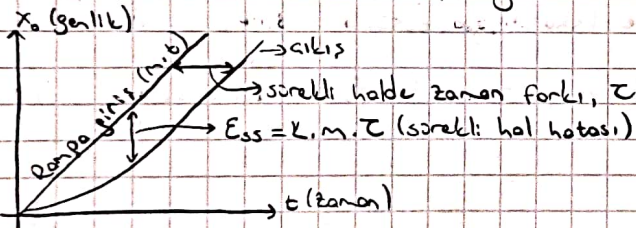 X₀ (genlik)
Rampa giriş (m.t)
çıkış
sürekli halde zaman farkı, τ
Ess = K.m.τ (sürekli hal hatası)
t (zaman)